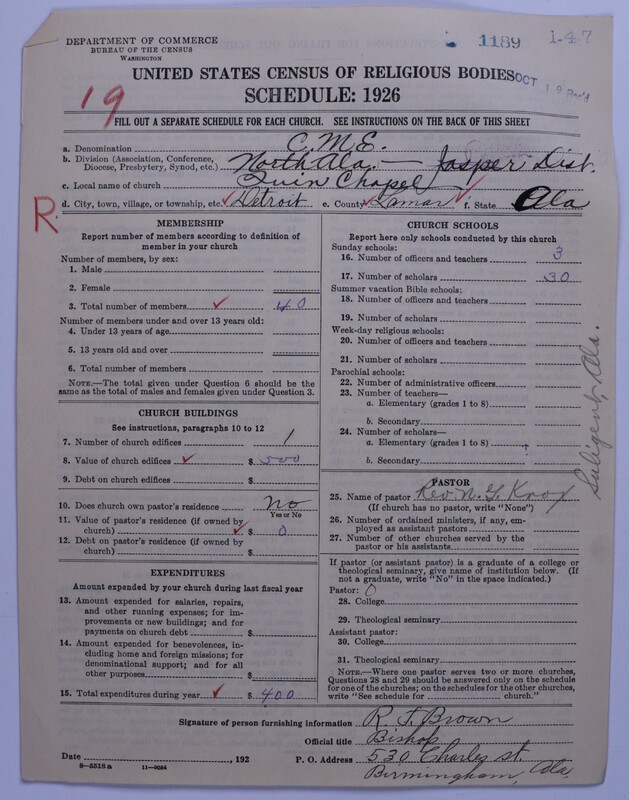 DEPARTMENT OF COMMERCE
BUREAU OF THE CENSUS
WASHINGTON
1189
1-47
UNITED STATES CENSUS OF RELIGIOUS BODIES
OCT 19 Rec'd
SCHEDULE: 1926
19
FILL OUT A SEPARATE SCHEDULE FOR EACH CHURCH. SEE INSTRUCTIONS ON THE BACK OF THIS SHEET
a. Denomination C.M.E.
b. Division (Association, Conference, Diocese, Presbytery, Synod, etc.) North Ala. — Jasper Dist.
c. Local name of church Quin Chapel
d. City, town, village, or township, etc. Detroit e. County Lamar f. State Ala
R
MEMBERSHIP
Report number of members according to definition of
member in your church
Number of members, by sex:
1. Male
2. Female
3. Total number of members 40
Number of members under and over 13 years old:
4. Under 13 years of age
5. 13 years old and over
6. Total number of members
NOTE.—The total given under Question 6 should be
same as the total of males and females given under Question 3.
CHURCH BUILDINGS
See instructions, paragraphs 10 to 12
7. Number of church edifices 1
8. Value of church edifices $ 500
9. Debt on church edifices $
10. Does church own pastor's residence No
Yes or No
11. Value of pastor's residence (if owned by
church) $ 0
12. Debt on pastor's residence (if owned by
church) $
EXPENDITURES
Amount expended by your church during last fiscal year
13. Amount expended for salaries, repairs,
and other running expenses; for im-
provements or new buildings; and for
payments on church debt $
14. Amount expended for benevolences, in-
cluding home and foreign missions; for
denominational support; and for all
other purposes $
15. Total expenditures during year $ 400
CHURCH SCHOOLS
Report here only schools conducted by this church
Sunday schools:
16. Number of officers and teachers 3
17. Number of scholars 30
Summer vacation Bible schools:
18. Number of officers and teachers
19. Number of scholars
Week-day religious schools:
20. Number of officers and teachers
21. Number of scholars
Parochial schools:
22. Number of administrative officers
23. Number of teachers—
a. Elementary (grades 1 to 8)
b. Secondary
24. Number of scholars—
a. Elementary (grades 1 to 8)
b. Secondary
Sulligent, Ala.
PASTOR
25. Name of pastor Rev. N. G. Knox
(If church has no pastor, write "None")
26. Number of ordained ministers, if any, em-
ployed as assistant pastors
27. Number of other churches served by the
pastor or his assistants
If pastor (or assistant pastor) is a graduate of a college or
theological seminary, give name of institution below. (If
not a graduate, write "No" in the space indicated.)
Pastor: 0
28. College
29. Theological seminary
Assistant pastor:
30. College
31. Theological seminary
NOTE.—Where one pastor serves two or more churches,
Questions 28 and 29 should be answered only on the schedule
for one of the churches; on the schedules for the other churches,
write "See schedule for church."
Signature of person furnishing information R. T. Brown
Official title Bishop
Date , 192 P. O. Address 530 Charles st.
8-5518a 11-9084
Birmingham, Ala.